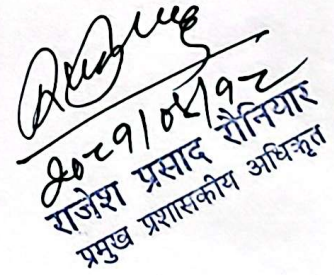 २०८१/०४/१८
राजेश प्रसाद रौनियार
प्रमुख प्रशासकीय अधिकृत